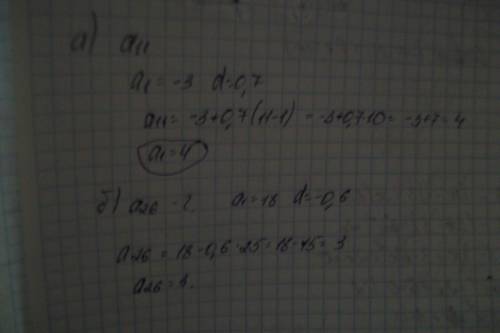 а) a11
a1 = -3 d=0,7
a11= -3+0,7(11-1) = -3+0,7·10= -3+7=4
a1=4
б) a26 - ? a1=18 d=-0,6
a26 = 18-0,6·25=18-15= 3